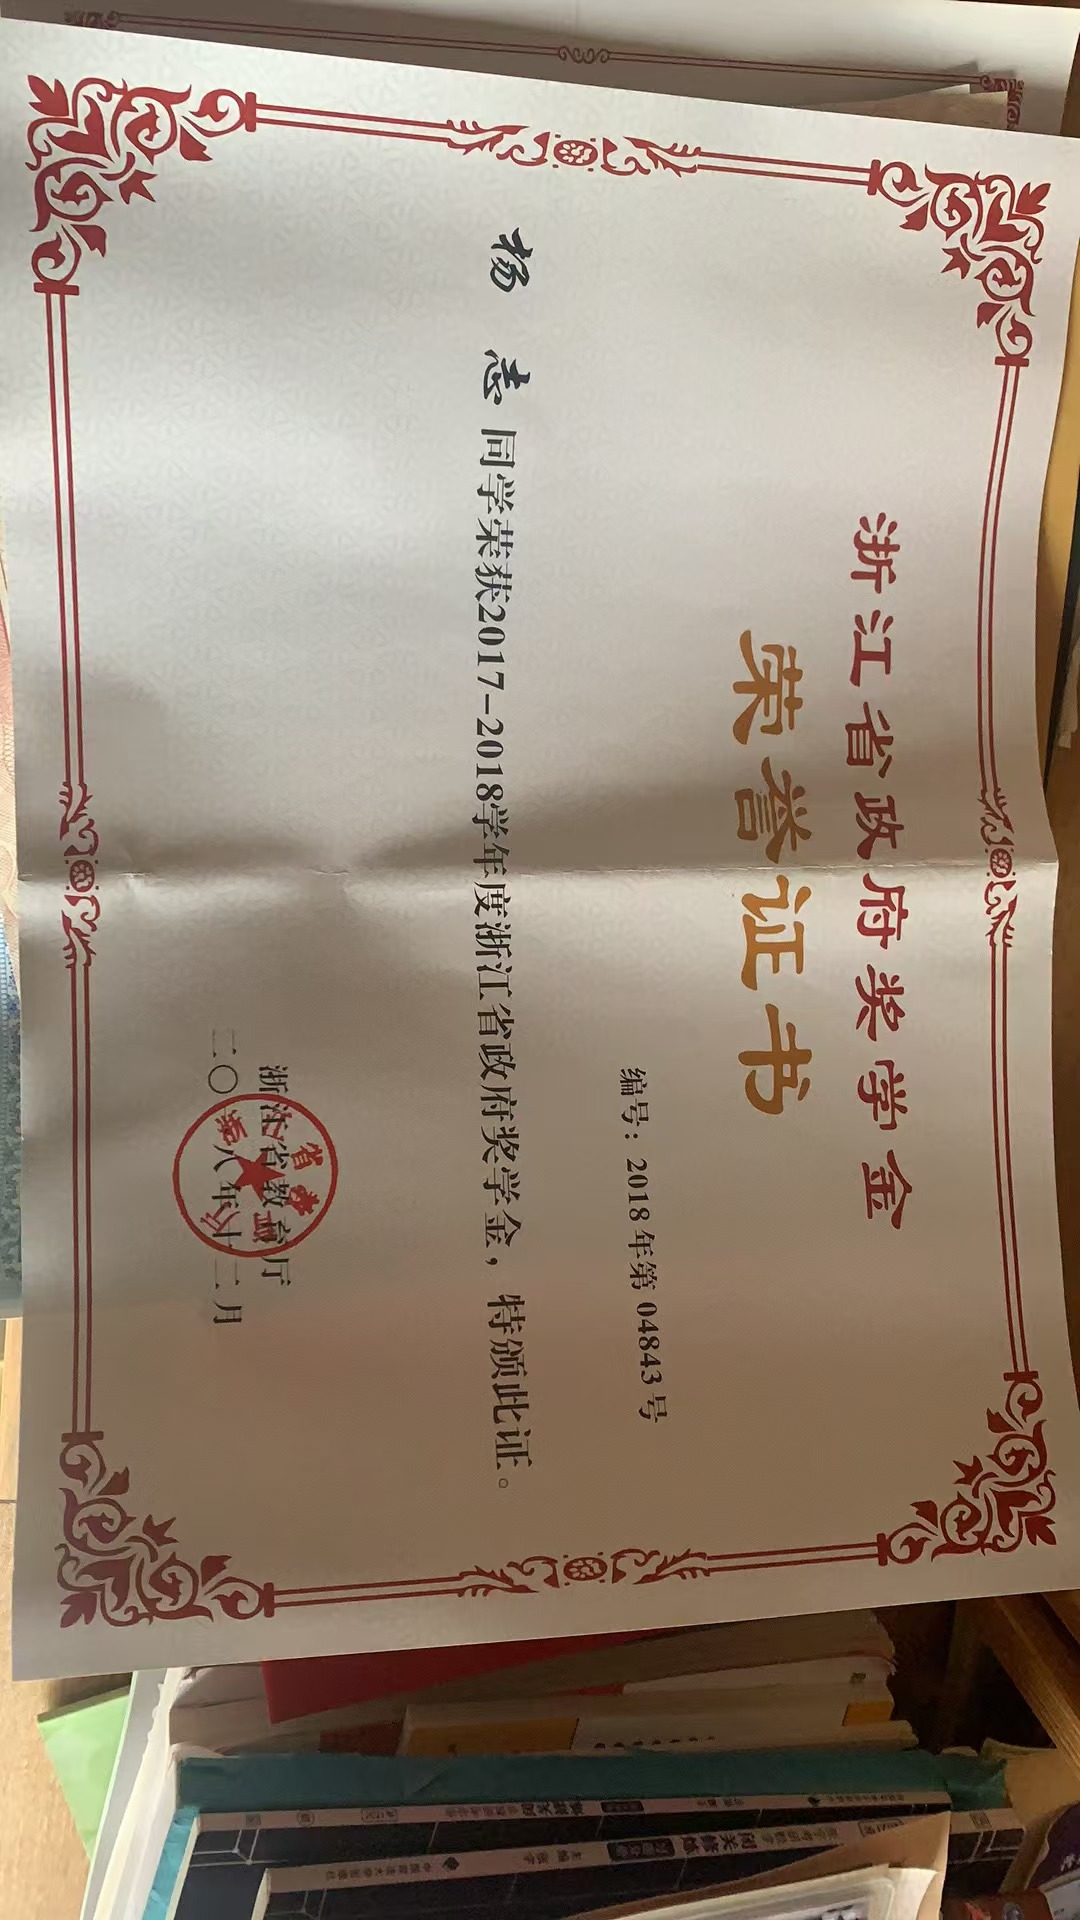 浙江省政府奖学金
荣誉证书
编号：2018年第04843号
杨 志 同学荣获2017-2018学年度浙江省政府奖学金，特颁此证。
浙江省教育厅
二〇一八年十二月